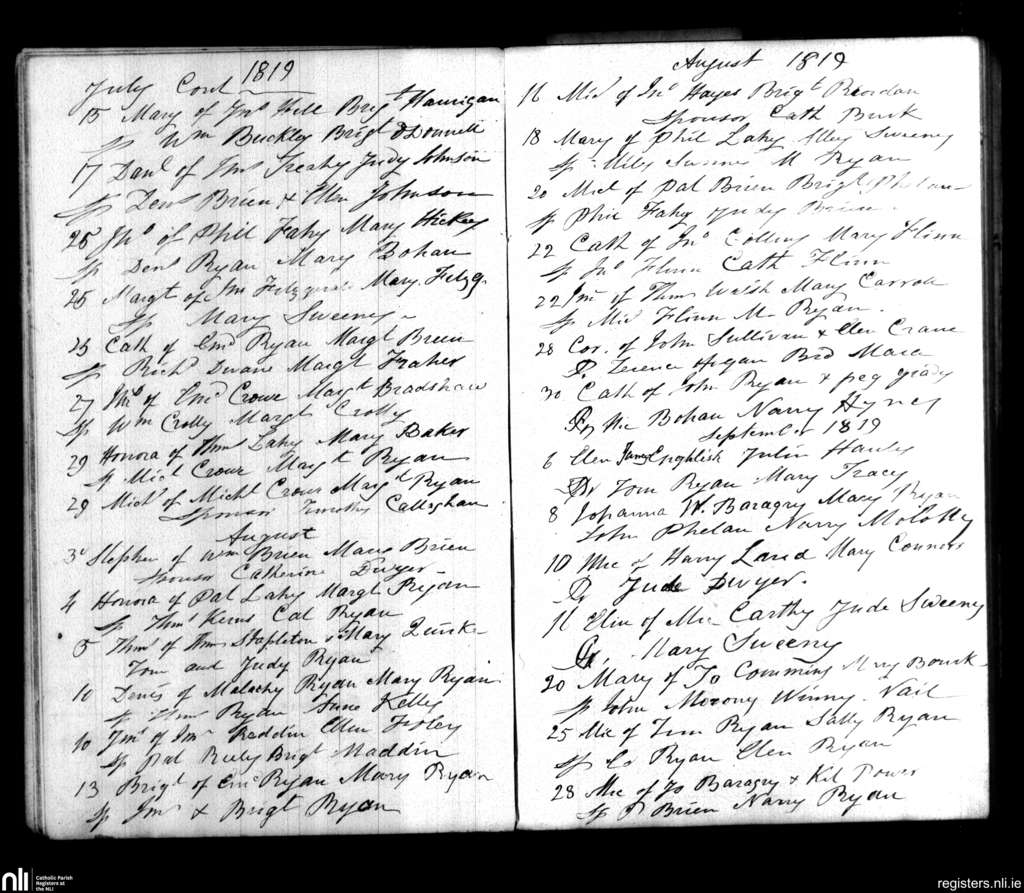 1819
July Cont
15 Mary of Jno Hill Brigt Hannigan
Sp Wm Buckley Brigt O Donnell
17 Danl of Tms Treahy Judy Johnson
Sp Dens Brien & Ellen Johnson
25 Jno of Phill Fahy Mary Hickey
Sp Dens Ryan Mary Bohan
25 Margt of Jm Fitzgerald Mary Fitzg.
Sp Mary Sweeney
25 Cath of Ryan Margt Breen
Sp Richd Dwane Margt Fraher
27 of Crowe Margt Bradshaw
Sp Wm Crotty Margt Crotty
29 Honora of Thms Lahy Mary Baker
Sp Micl Crowe Margt Ryan
29 Michl of Michl Crowe Margt Ryan
Sponsor Timothy Callaghan
August
3d Stephen of Wm Brien Mary Brien
Sponsor Catherine Dwyer
4 Honora of Pat Lahy Margt Ryan
Sp Thms Kerns Cat Ryan
5 Thms of Thms Stapleton & Mary Quirke
Tom and Judy Ryan
10 Denis of Malachy Ryan Mary Ryan
Sp Thms Ryan Kelly
10 Jms of Jms Ellen
Sp Pat Brigt Maddin
13 Brigt of Ryan Mary Ryan
Sp Jms & Brigt Ryan
August 1819
16 Micl of Jno Hayes Brigt Riordan
Sponsor Cath Burk
18 Mary of Phil Lahy Sweeney
Sp M Ryan
20 Micl of Pat Brien Brigt Phelan
Sp Phil Fahy Judy
22 Cath of Jno Collins Mary Flinn
Sp Jno Flinn Cath Flinn
22 Jms of Thms Walsh Mary Carroll
Sp Micl Flinn M Ryan.
28 Cor. of John Sullivan & Elen Crane
Sp Terence Hogan Brd Mara
30 Cath of John Ryan & peg grady
Sp Mic Bohan Nanny Hynes
September 1819
6 Elen James English Julia Hanly
Sp Tom Ryan Mary Tracy
8 Johanna W. Baragry Mary Ryan
John Phelan Nanny Molokny
10 Mic of Harry Land Mary Connors
Sp Jude Dwyer.
11 Elin of Mic Carthy Jude Sweeny
Sp. Mary Sweeny
20 Mary of Jo Commins Mary Bourk
Sp John Morony Winny Nail
25 Mic of Tim Ryan Sally Ryan
Sp Co Ryan Elen Ryan
28 Mic of Jo Baragry & Kit Power
Sp P Brien Nanny Ryan
nli
Catholic Parish
Registers at
the NLI
registers.nli.ie